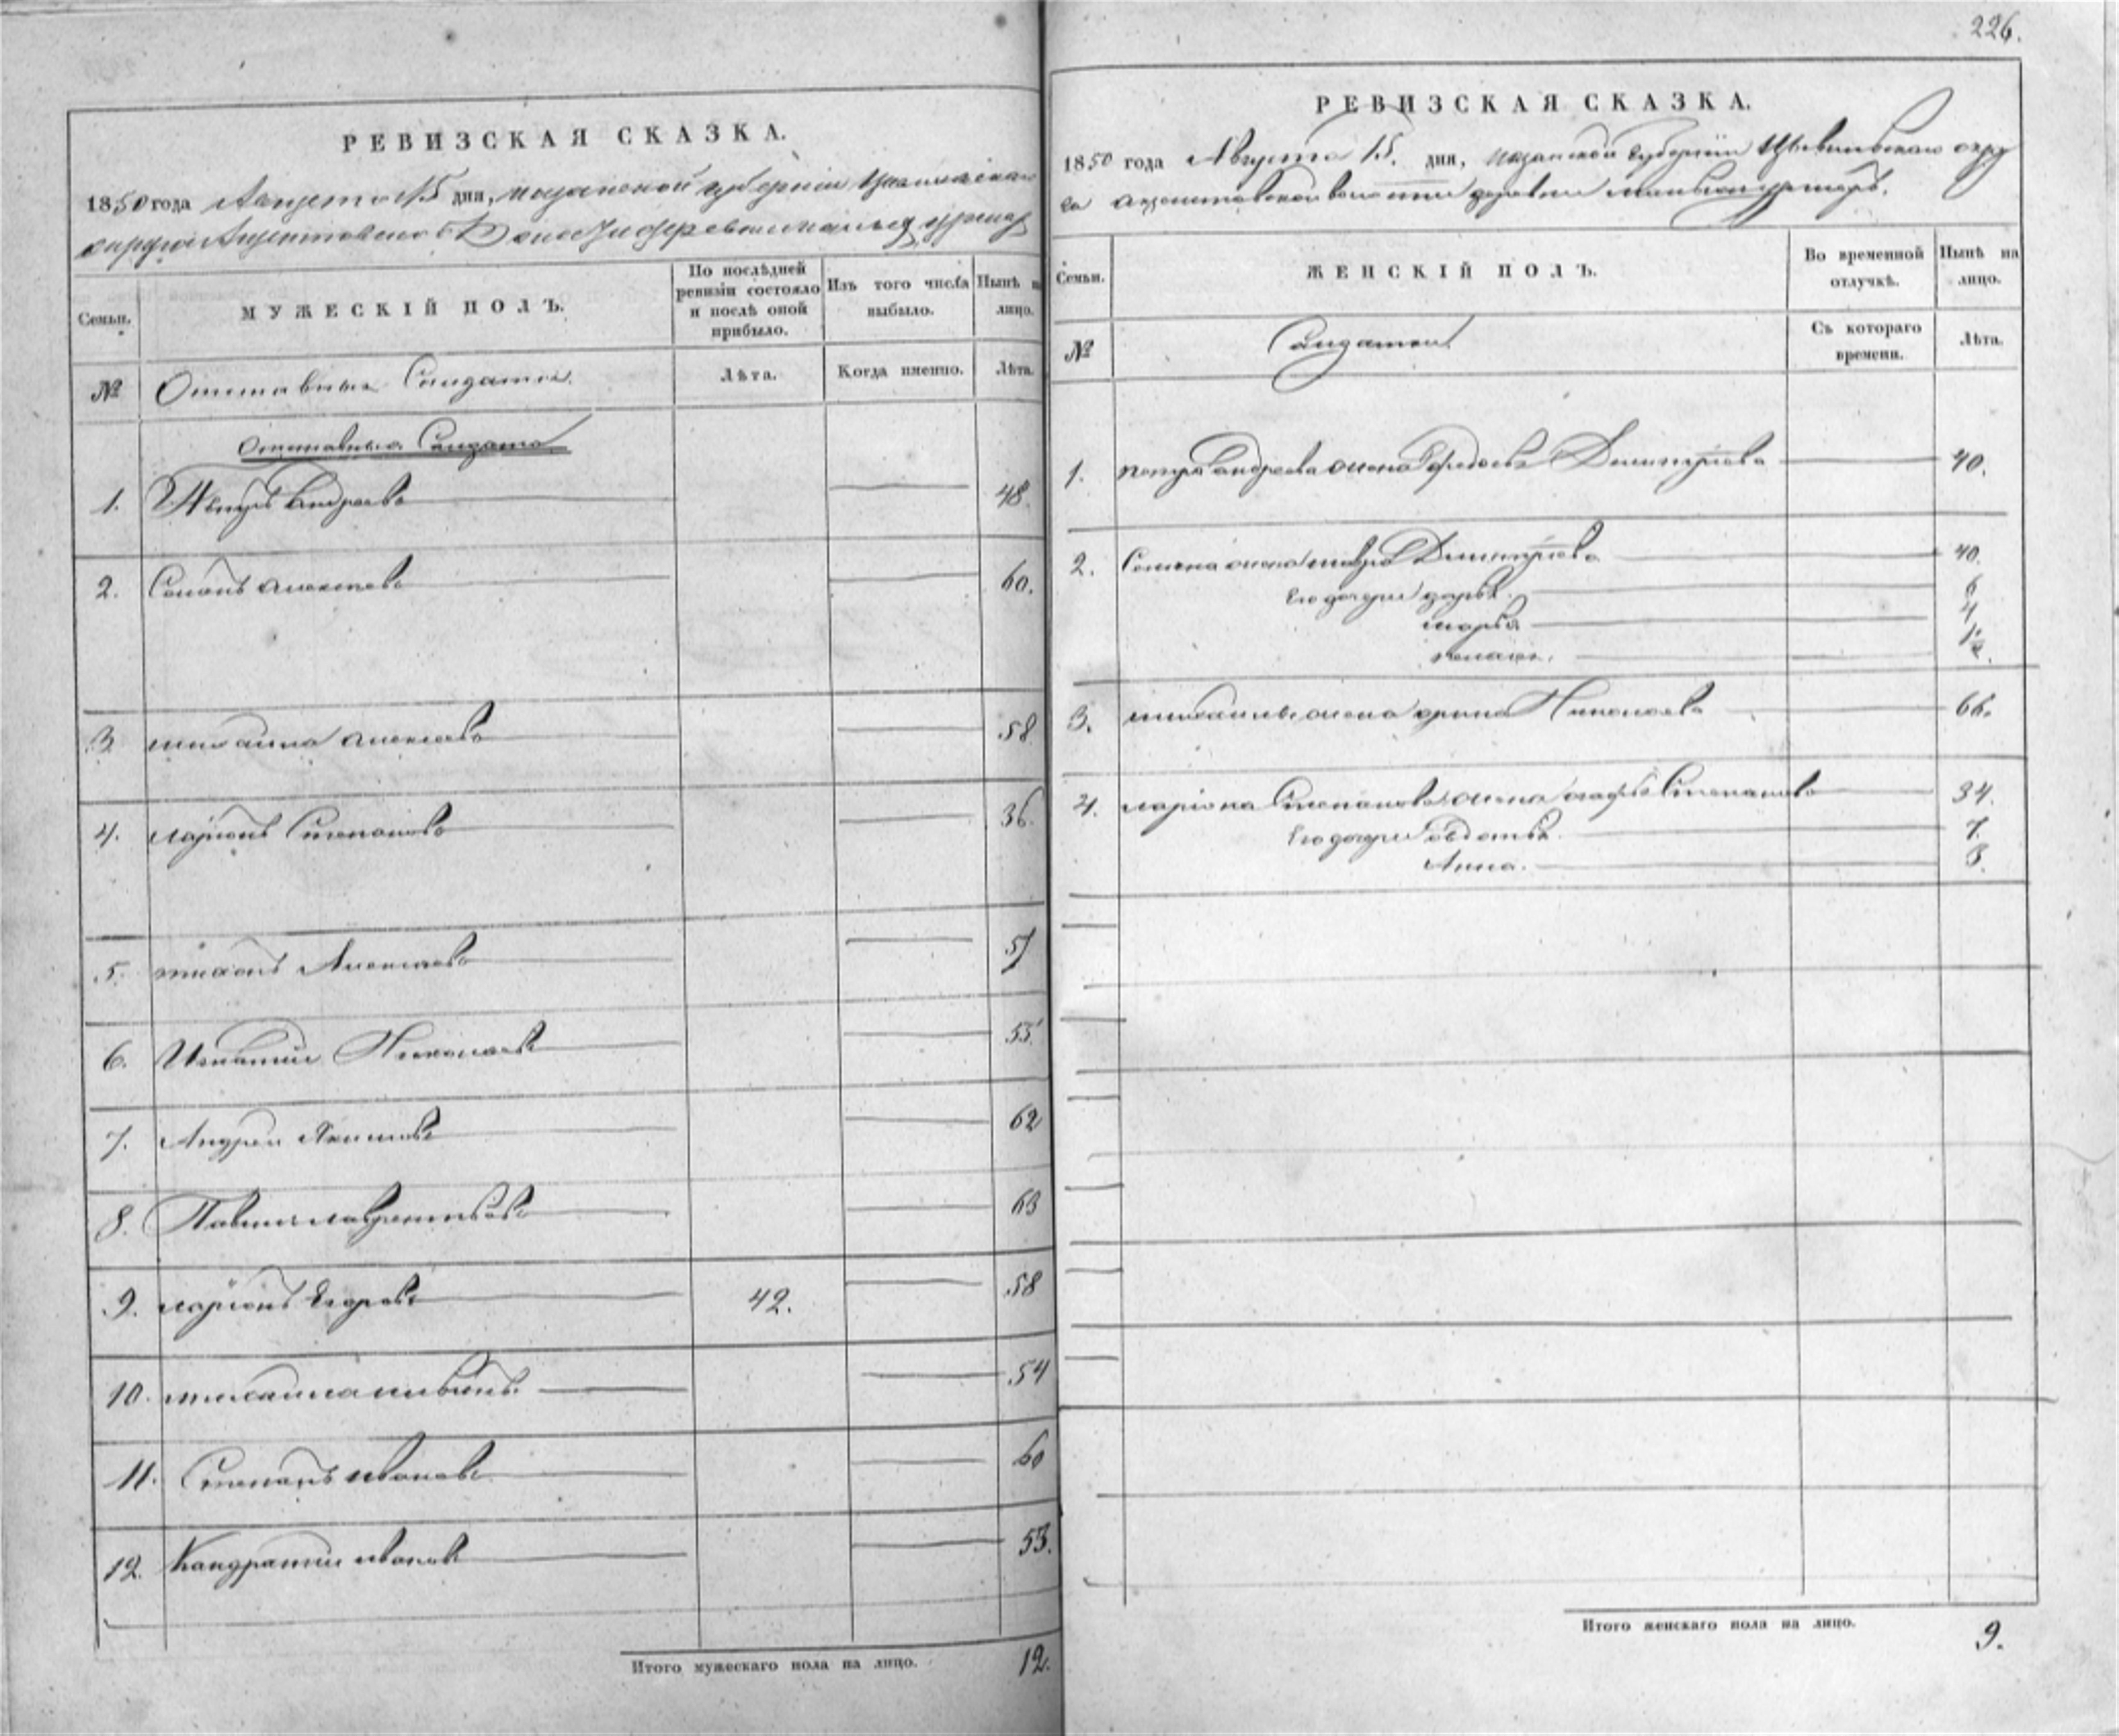 РЕВИЗСКАЯ СКАЗКА.
1850 года Августа 15 дня, Казанской губернии Цывильскаго
округа деревни малыя
Семьи.
МУЖЕСКІЙ ПОЛЪ.
По послѣдней ревизіи состояло и послѣ оной прибыло.
Изъ того числа выбыло.
Нынѣ на лицо.
№
Отставные Салдаты.
Лѣта.
Когда именно.
Лѣта.
Отставные Салдаты
1. Петръ Андреевъ 48
2. Семенъ Алексеевъ 60.
3. михаила Алексеевъ 58
4. ларіонъ Степановъ 36.
5. тихонъ Алексеевъ 57
6. Игнатий Николаевъ 55
7. Андрей Якимовъ 62
8. Павелъ лаврентьевъ 63
9. ларіонъ Егоровъ 42. 58
10. михаила 54
11. Степанъ ивановъ 60
12. Кандратий ивановъ 53.
Итого мужескаго пола на лицо. 12.
226.
РЕВИЗСКАЯ СКАЗКА.
1850 года Августа 15. дня, казанской губерніи Цывильскаго окру
га волости деревни
Семьи.
ЖЕНСКІЙ ПОЛЪ.
Во временной отлучкѣ.
Нынѣ на лицо.
№
Салдатки
Съ котораго времени.
Лѣта.
1. Петра андреева жена Федосья Димитриева 40.
2. Семена жена мавра Димитриева 40.
Его дочери дарья 6
марья 4
пелагея. 1½.
3. михаилы жена орина Николаева 66.
4. ларіона Степанова жена агафья Степанова 34.
Его дочери овдотья 7.
Анна. 3.
Итого женскаго пола на лицо. 9.